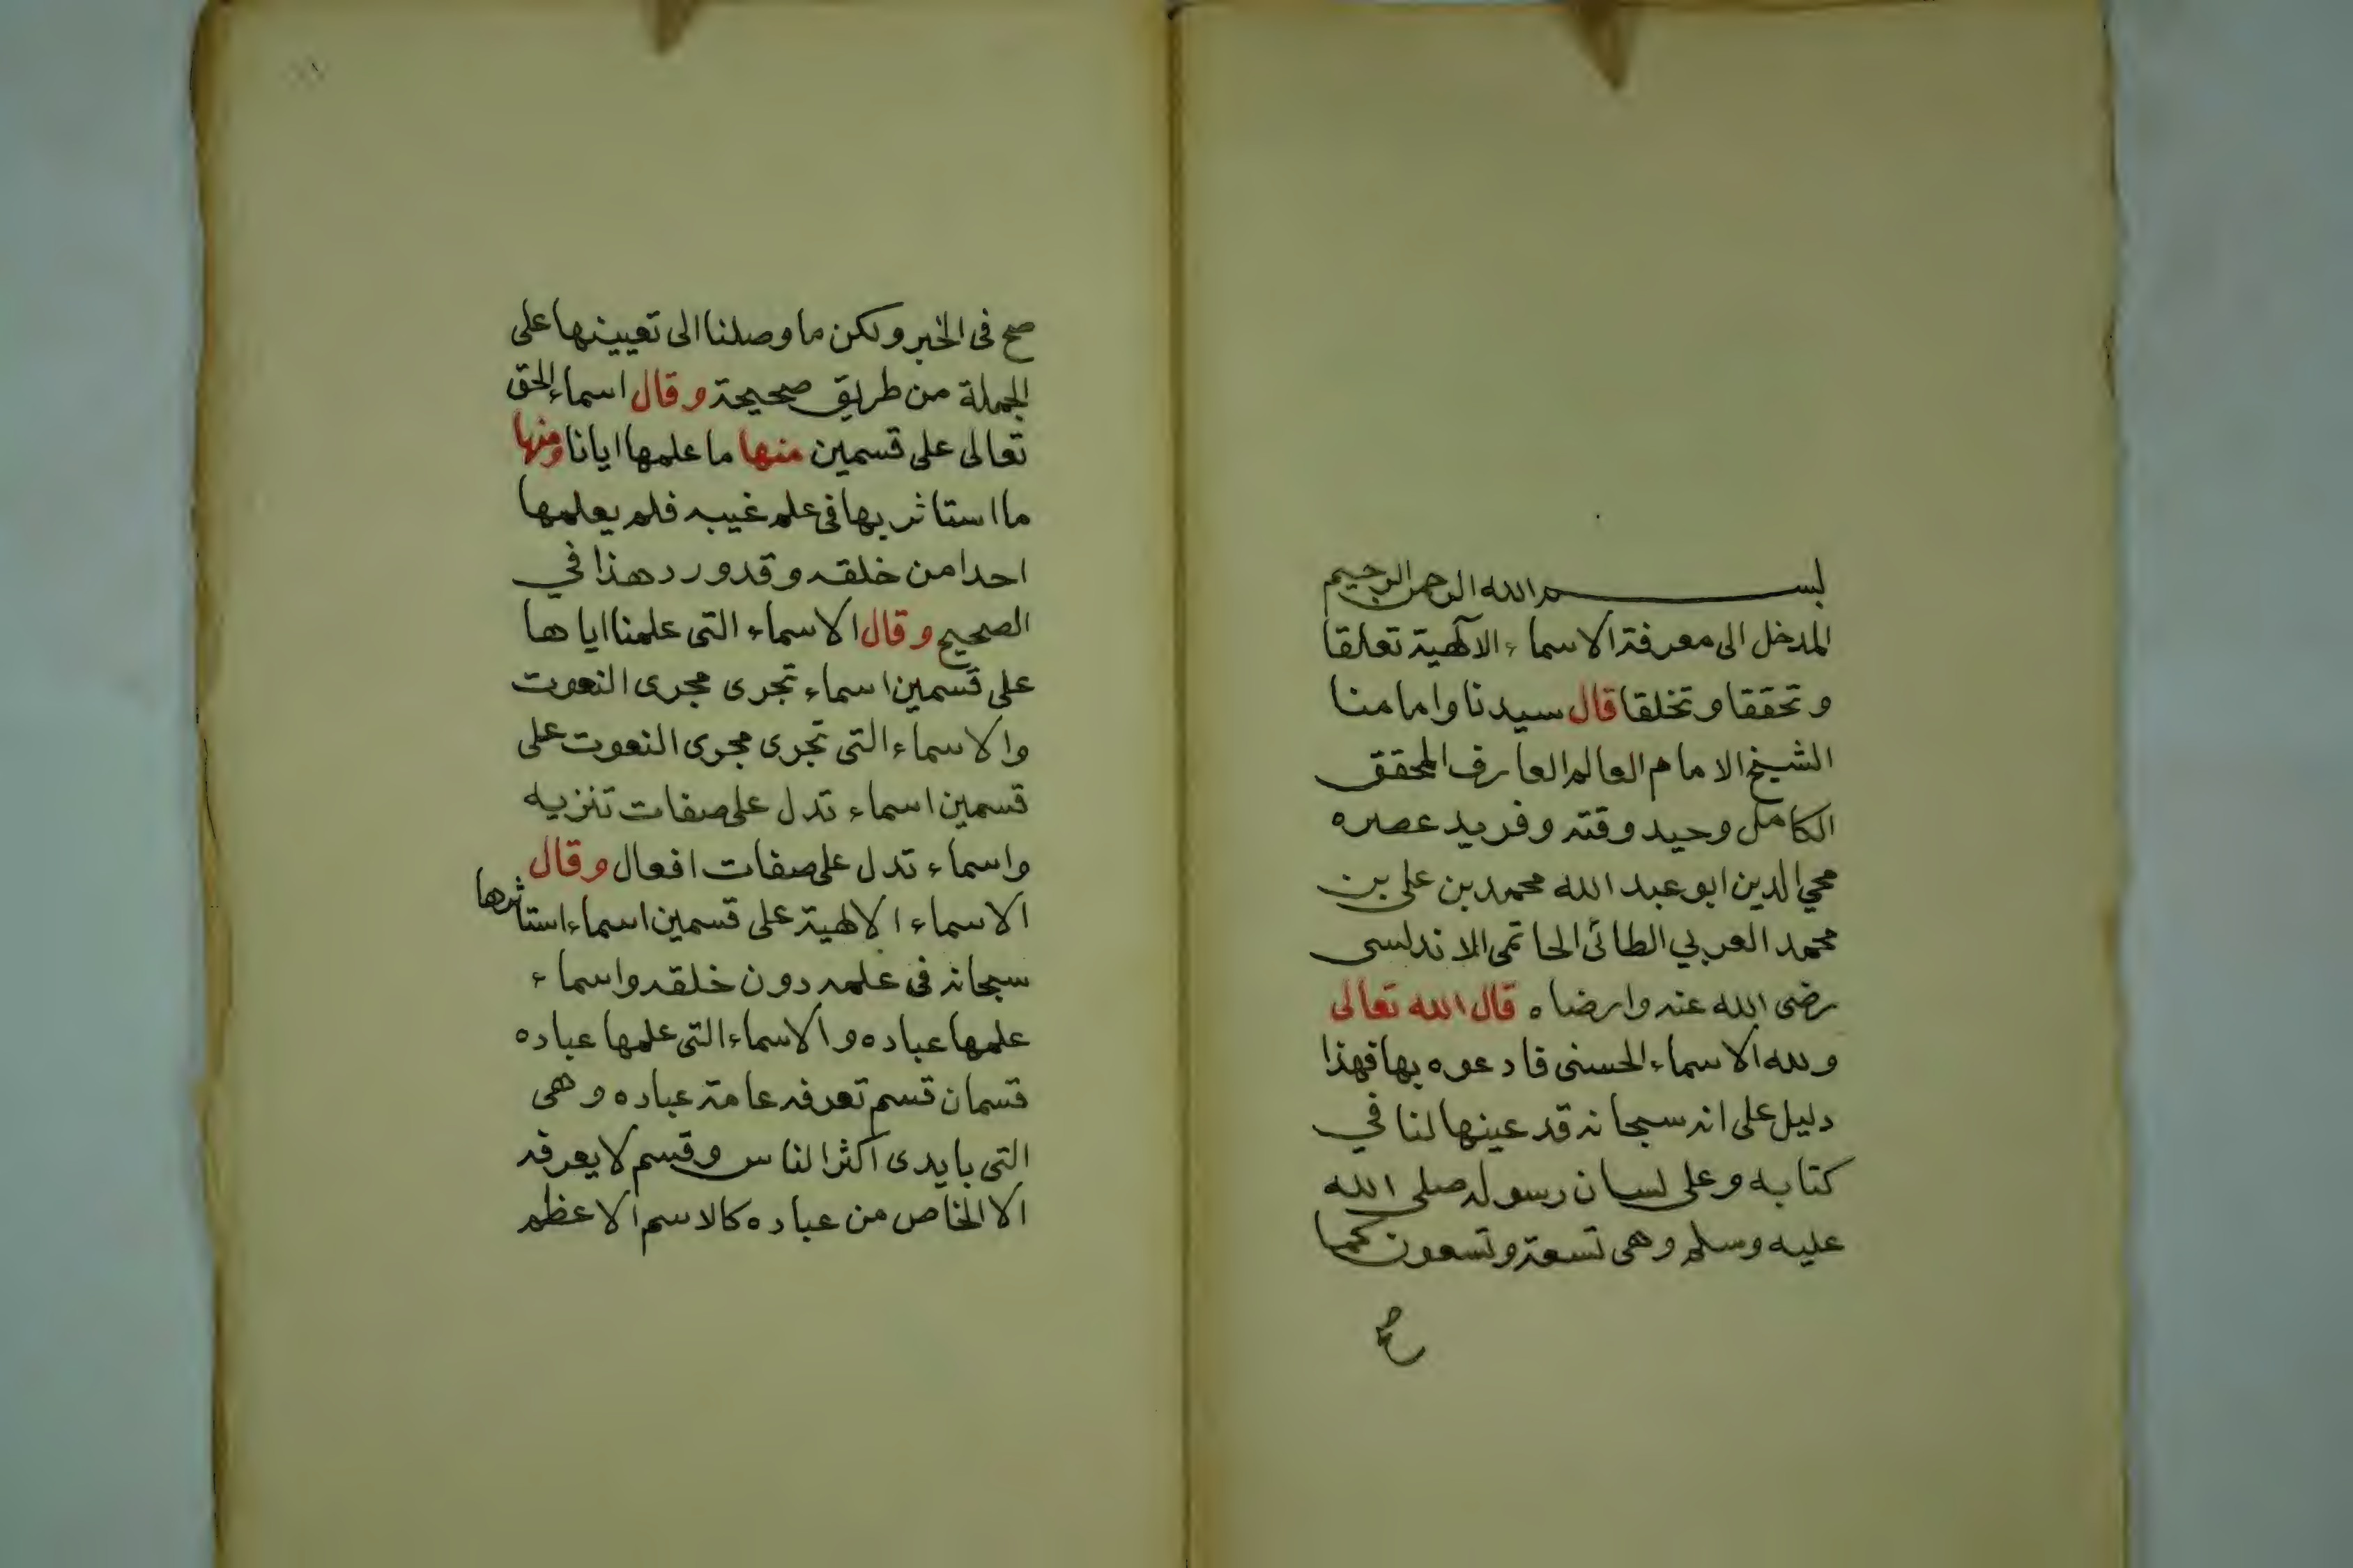 بسم الله الرحمن الرحيم
المدخل الى معرفة الاسماء الآلهية تعلقا
وتحققا وتخلقا قال سيدنا وامامنا
الشيخ الامام العالم العارف المحقق
الكامل وحيد وقته وفريد عصره
محي الدين ابو عبد الله محمد بن على بن
محمد العربي الطائى الحاتمى الاندلسى
رضى الله عنه وارضاه قال الله تعالى
ولله الاسماء الحسنى فادعوه بها فهذا
دليل على انه سبحانه قد عينها لنا في
كتابه وعلى لسان رسوله صلى الله
عليه وسلم وهى تسعة وتسعون كما
صح
صح فى الخبر ولكن ما وصلنا الى تعيينها على
الجملة من طريق صحيحة وقال اسماء الحق
تعالى على قسمين منها ما علمها ايانا ومنها
ما استاثر بها فى علم غيبه فلم يعلمها
احدا من خلقه وقد ورد هذا في
الصحيح وقال الاسماء التى علمنا اياها
على قسمين اسماء تجرى مجرى النعوت
والاسماء التى تجرى مجرى النعوت على
قسمين اسماء تدل على صفات تنزيه
واسماء تدل على صفات افعال وقال
الاسماء الالهية على قسمين اسماء استاثرها
سبحانه فى علمه دون خلقه واسماء
علمها عباده والاسماء التى علمها عباده
قسمان قسم تعرفه عامة عباده وهى
التى بايدى اكثر الناس وقسم لا يعرفه
الا الخاص من عباده كالاسم الاعظم